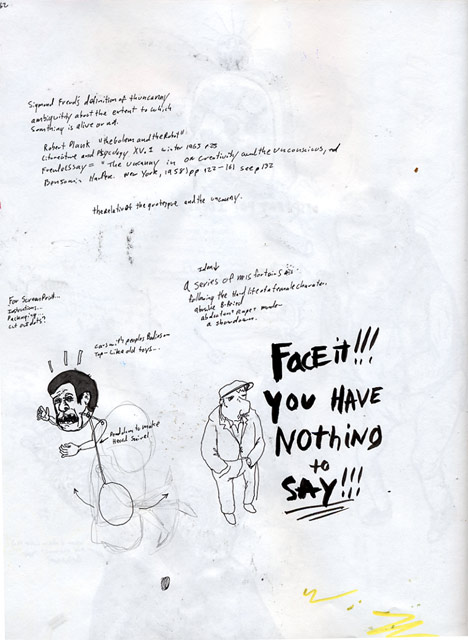 52
Sigmund Freud's definition of thuncanny
ambiguitiy about the extent to which
something is alive or not.
Robert Plank "thegolem and the Robot".
Literature and Psycology XV, I winter 1965 p25
Freud essay = "The uncanny in on creativity and the unconscious, ed
Benjamin New York, 1958) pp 122-161 see p 132
the relative of the grotesque and the uncanny.
Idea
a series of misfortains
following the Hard life of a female charater.
abusive B-friend
abduction? Rape? murder
a showdown.
For Screen Print...
instructions...
Packaging...
cut out dots!
can smits peoples Bodies on
Top - Like old toys...
Pendulum to make
Head Swivel
Face it!!!
You HAVE
Nothing
to
SAY!!!